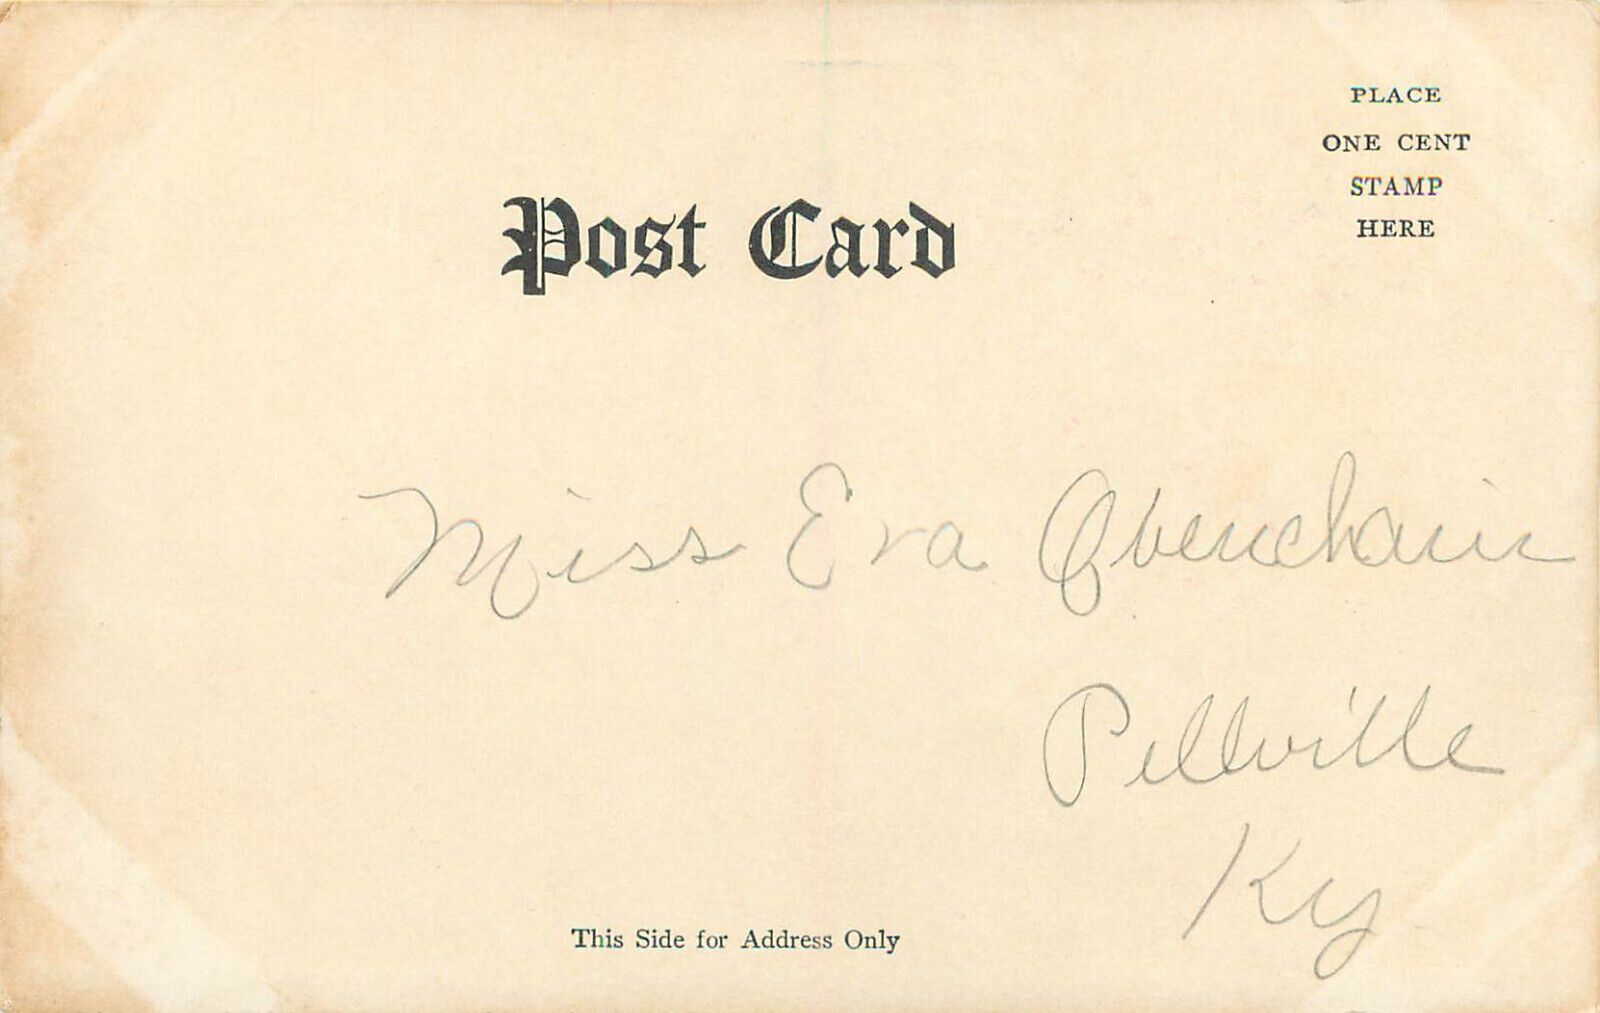 PLACE
ONE CENT
STAMP
HERE
Post Card
Miss Eva Obenchain
Pellville
Ky
This Side for Address Only